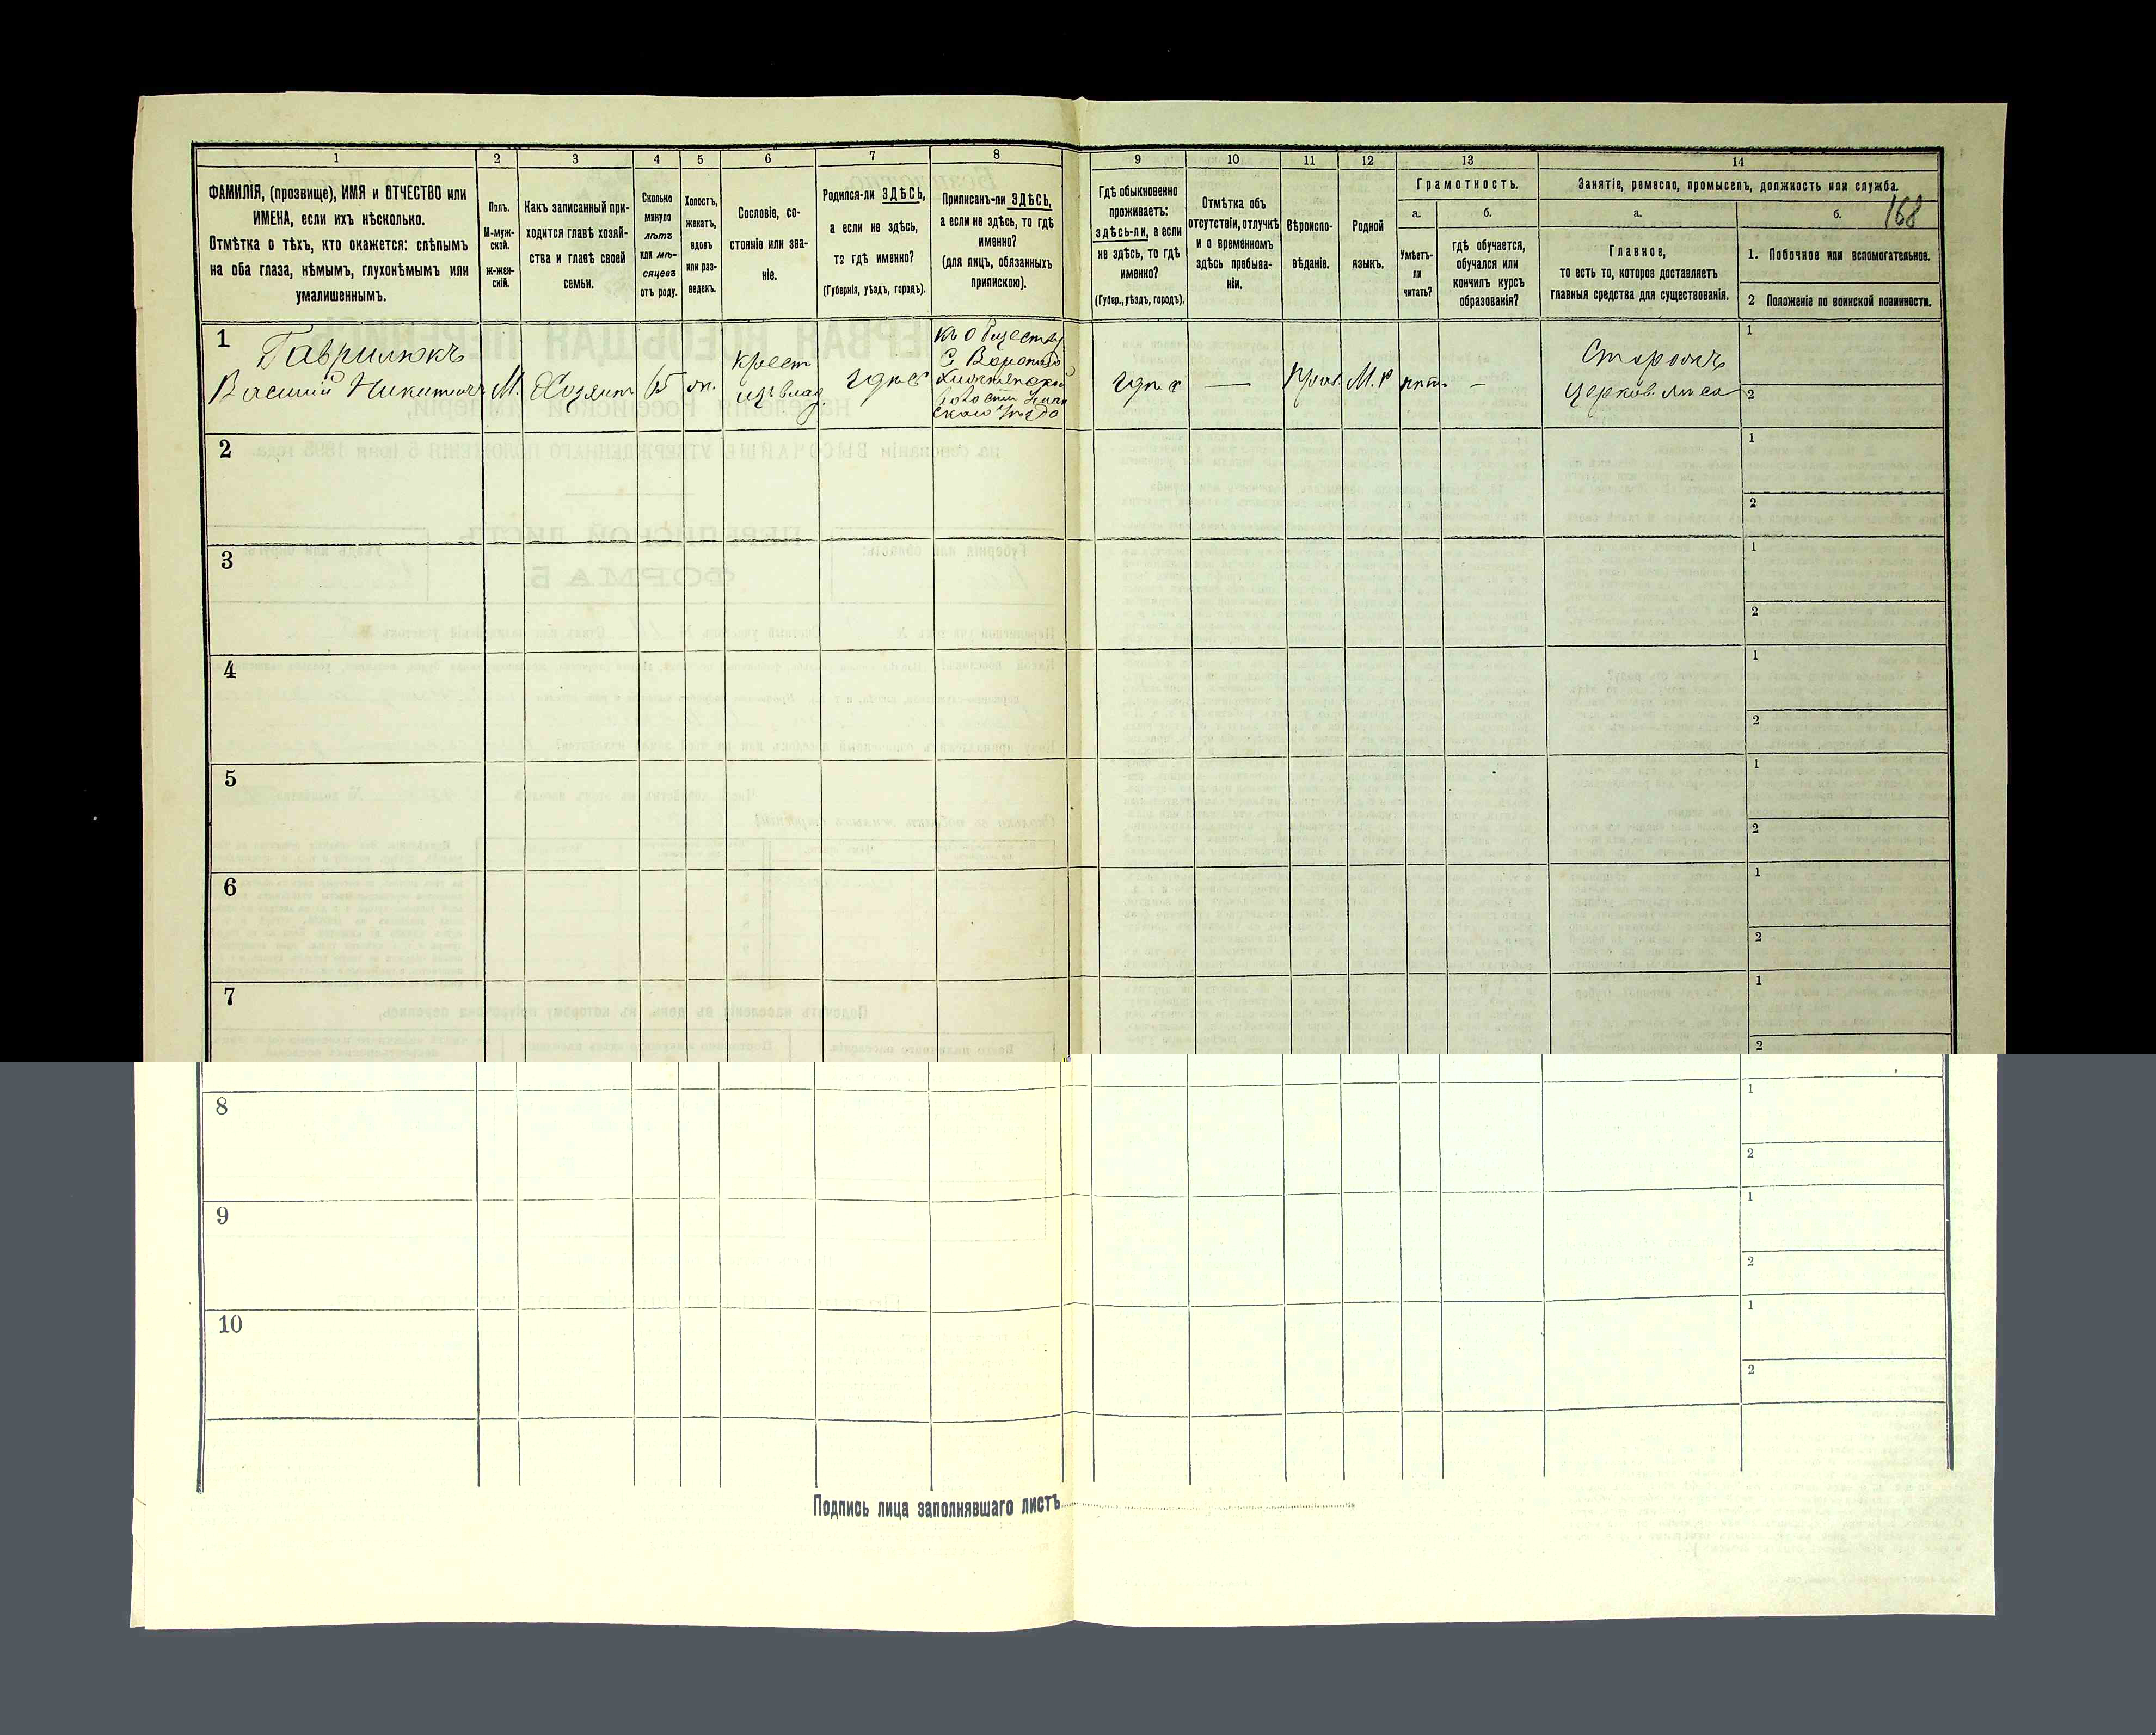 1
2
3
4
5
6
7
8
9
10
11
12
13
14
ФАМИЛІЯ, (прозвище), ИМЯ и ОТЧЕСТВО или
ИМЕНА, если ихъ нѣсколько.
Отмѣтка о тѣхъ, кто окажется: слѣпымъ
на оба глаза, нѣмымъ, глухонѣмымъ или
умалишеннымъ.
Полъ.
М-муж-
ской.
ж-жен-
скій.
Какъ записанный при-
ходится главѣ хозяй-
ства и главѣ своей
семьи.
Сколько
минуло
лѣтъ
или мѣ-
сяцевъ
отъ роду.
Холостъ,
женатъ,
вдовъ
или раз-
веденъ.
Сословіе, со-
стояніе или зва-
ніе.
Родился-ли ЗДѢСЬ,
а если не здѣсь,
то гдѣ именно?
(Губернія, уѣздъ, городъ).
Приписанъ-ли ЗДѢСЬ,
а если не здѣсь, то гдѣ
именно?
(для лицъ, обязанныхъ
припискою).
Гдѣ обыкновенно
проживаетъ:
здѣсь-ли, а если
не здѣсь, то гдѣ
именно?
(Губер., уѣздъ, городъ).
Отмѣтка объ
отсутствіи, отлучкѣ
и о временномъ
здѣсь пребыва-
ніи.
Вѣроиспо-
вѣданіе.
Родной
языкъ.
Грамотность.
а.
б.
Умѣетъ-
ли
читать?
гдѣ обучается,
обучался или
кончилъ курсъ
образованія?
Занятіе, ремесло, промыселъ, должность или служба.
а.
б.
168
Главное,
то есть то, которое доставляетъ
главныя средства для существованія.
1. Побочное или вспомогательное.
2 Положеніе по воинской повинности.
1
Гаврилюкъ
Василій Никитичъ
М.
Хозяинъ
крест
изъ влад
здѣсь
къ обществу
волости
скаго
здѣсь
—
прав.
М. Р
нѣт.
—
Сторожъ
церков. лѣса
1
2
2
1
2
3
1
2
4
1
2
5
1
2
6
1
2
7
1
2
8
1
2
9
1
2
10
1
2
Подпись лица заполнявшаго листъ